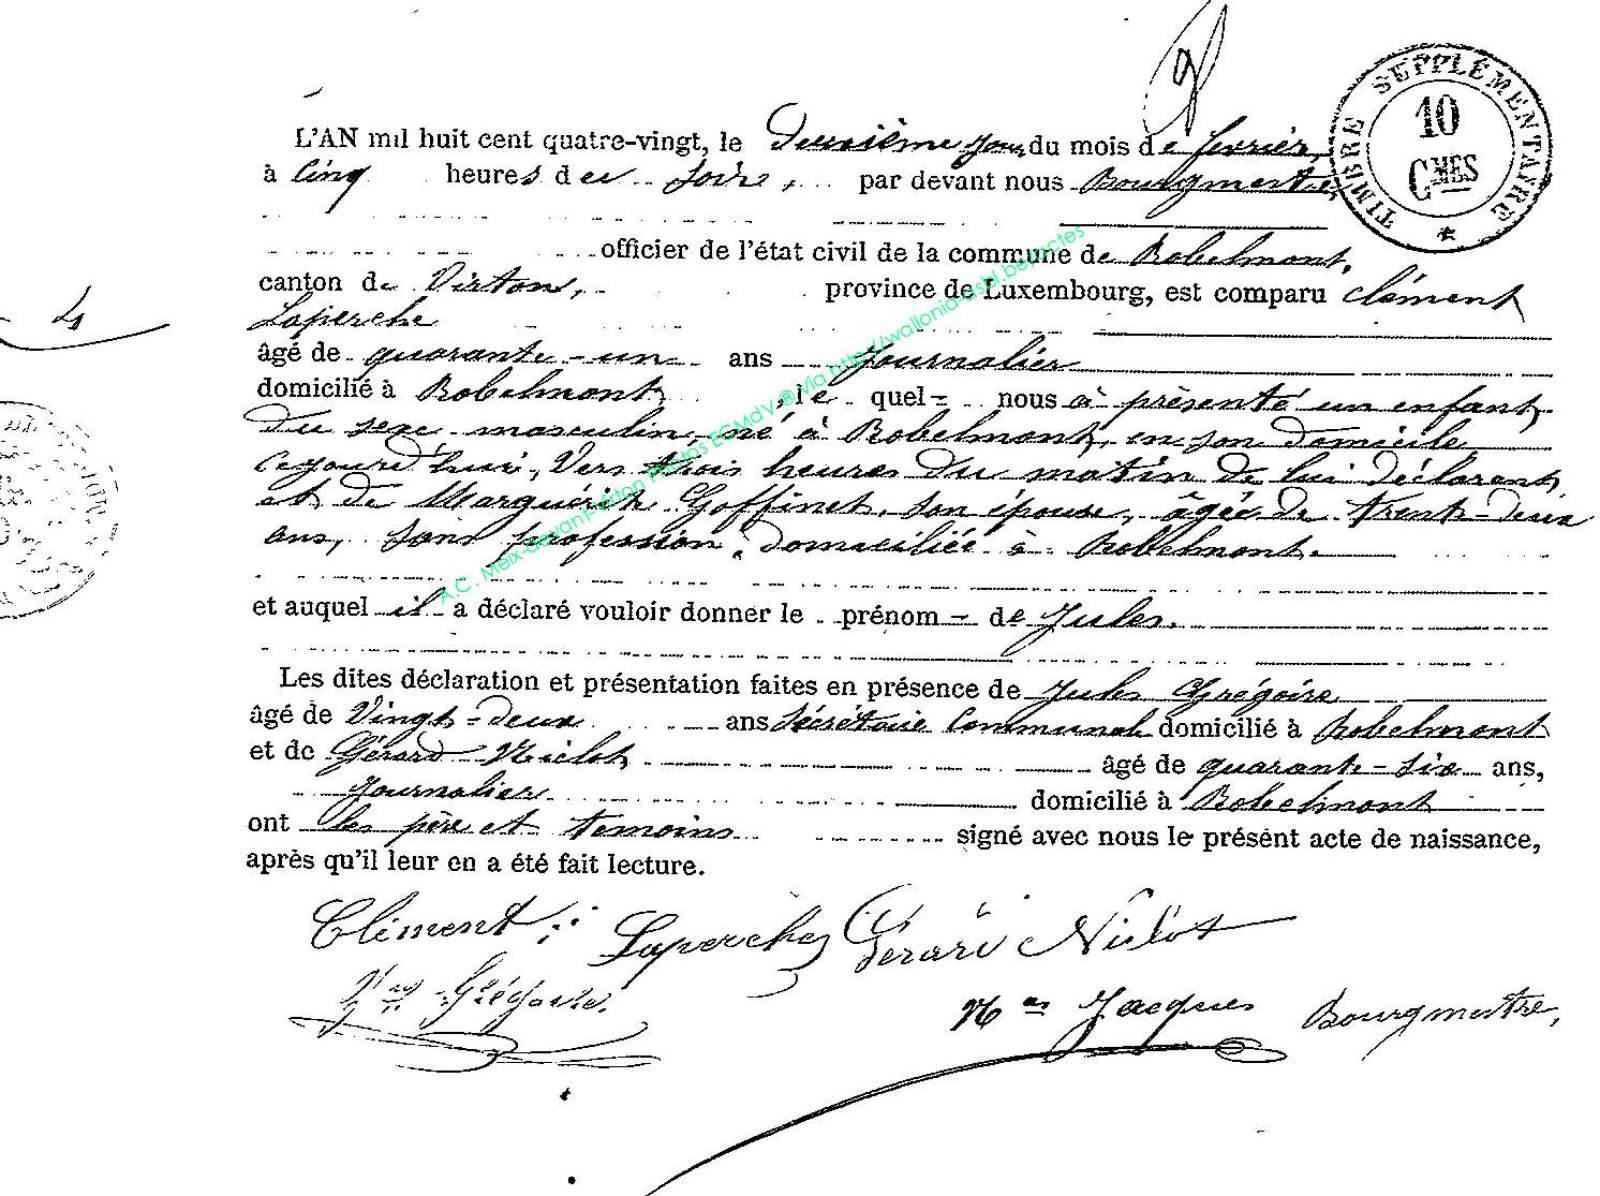 TIMBRE SUPPLÉMENTAIRE
10
CMES
L'AN mil huit cent quatre-vingt, le Deuxième jour du mois de fevrier,
à Cinq heures du soir, par devant nous Bourgmestre
officier de l'état civil de la commune de Robelmont,
canton de Virton, province de Luxembourg, est comparu Clément
Laperche
âgé de quarante-un ans Journalier
domicilié à Robelmont, le quel nous a présenté un enfant
Du sexe masculin, né à Robelmont, en son domicile
cejourd'hui, Vers trois heures du matin de lui déclarant
et de Marguérite Goffinet, son épouse, âgée de trente-deux
ans, sans profession, domiciliée à Robelmont.
et auquel il a déclaré vouloir donner le prénom de Jules.
Les dites déclaration et présentation faites en présence de Jules Grégoire
âgé de Vingt-deux ans Sécrétaire Communal domicilié à Robelmont
et de Gérard Niclot âgé de quarante-six ans,
Journalier domicilié à Robelmont
ont les père et temoins signé avec nous le présent acte de naissance,
après qu'il leur en a été fait lecture.
Clément Laperche Gérard Niclot
Grégoire.
Nas Jacques Bourgmestre,
A.C. Meix-devant-Virton Photos EGMdV ® via http://wallonia-asbl.be/actes